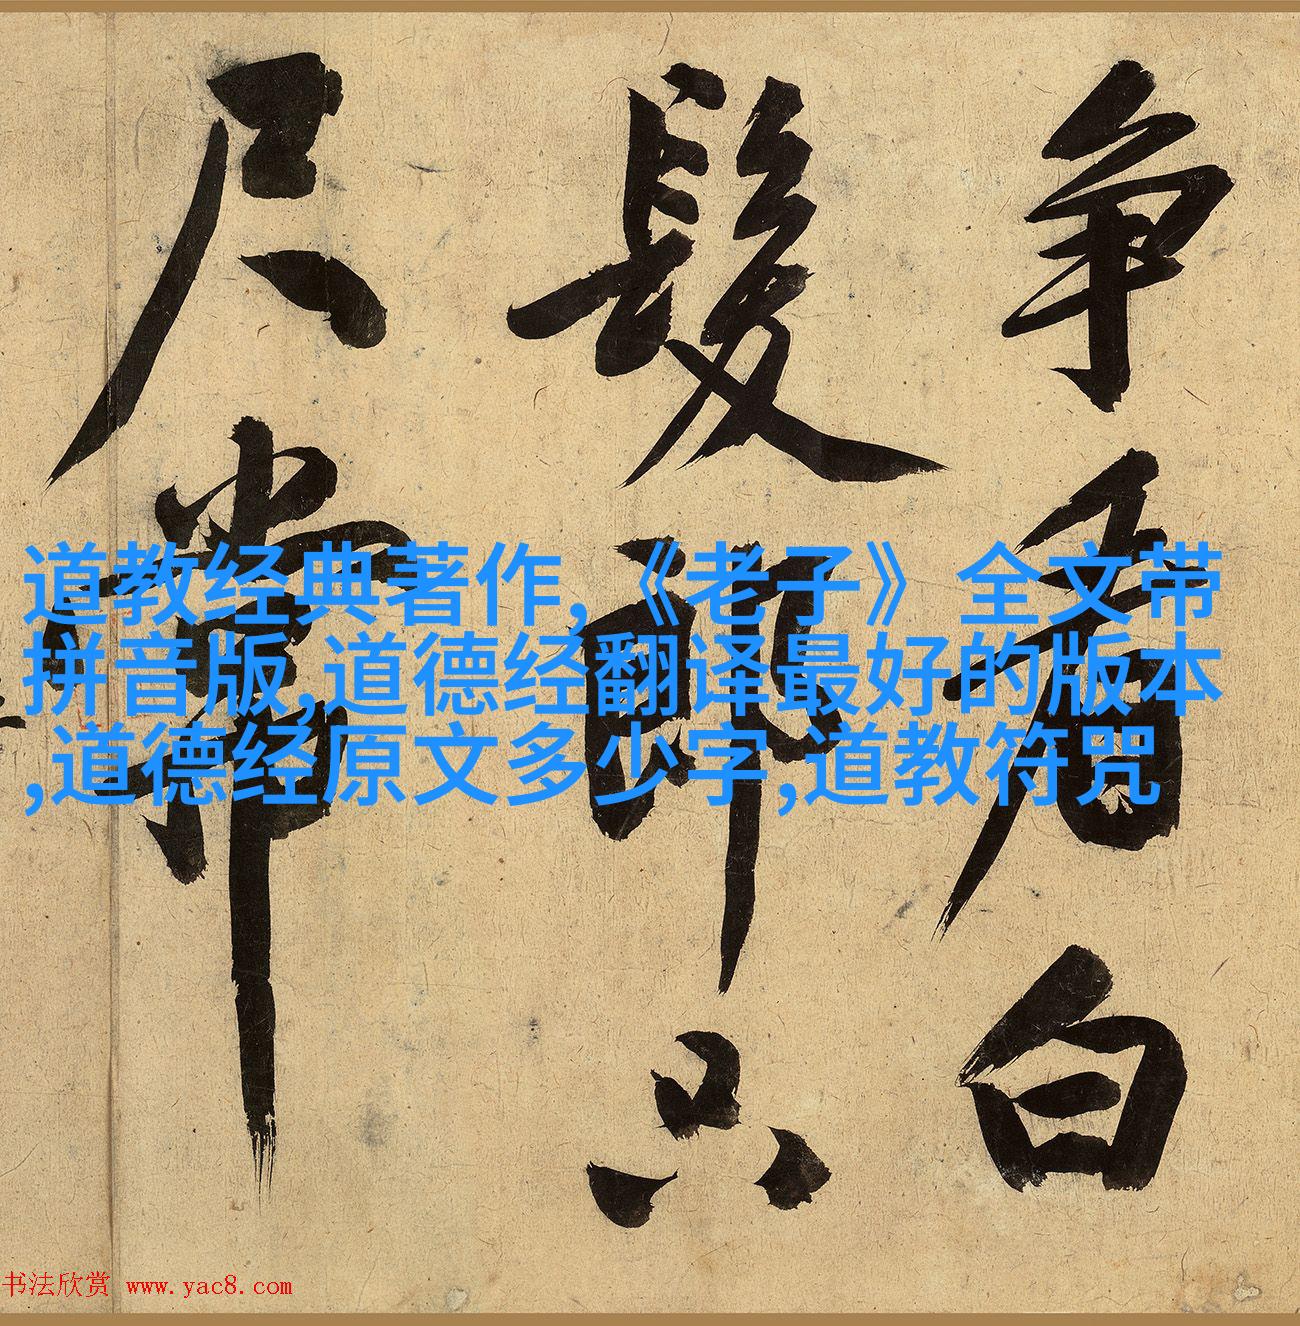 争看白
髮郎只
尺常
道教经典著作,《老子》全文带
拼音版,道德经翻译最好的版本
,道德经原文多少字,道教符咒
书法欣赏 www.yac8.com